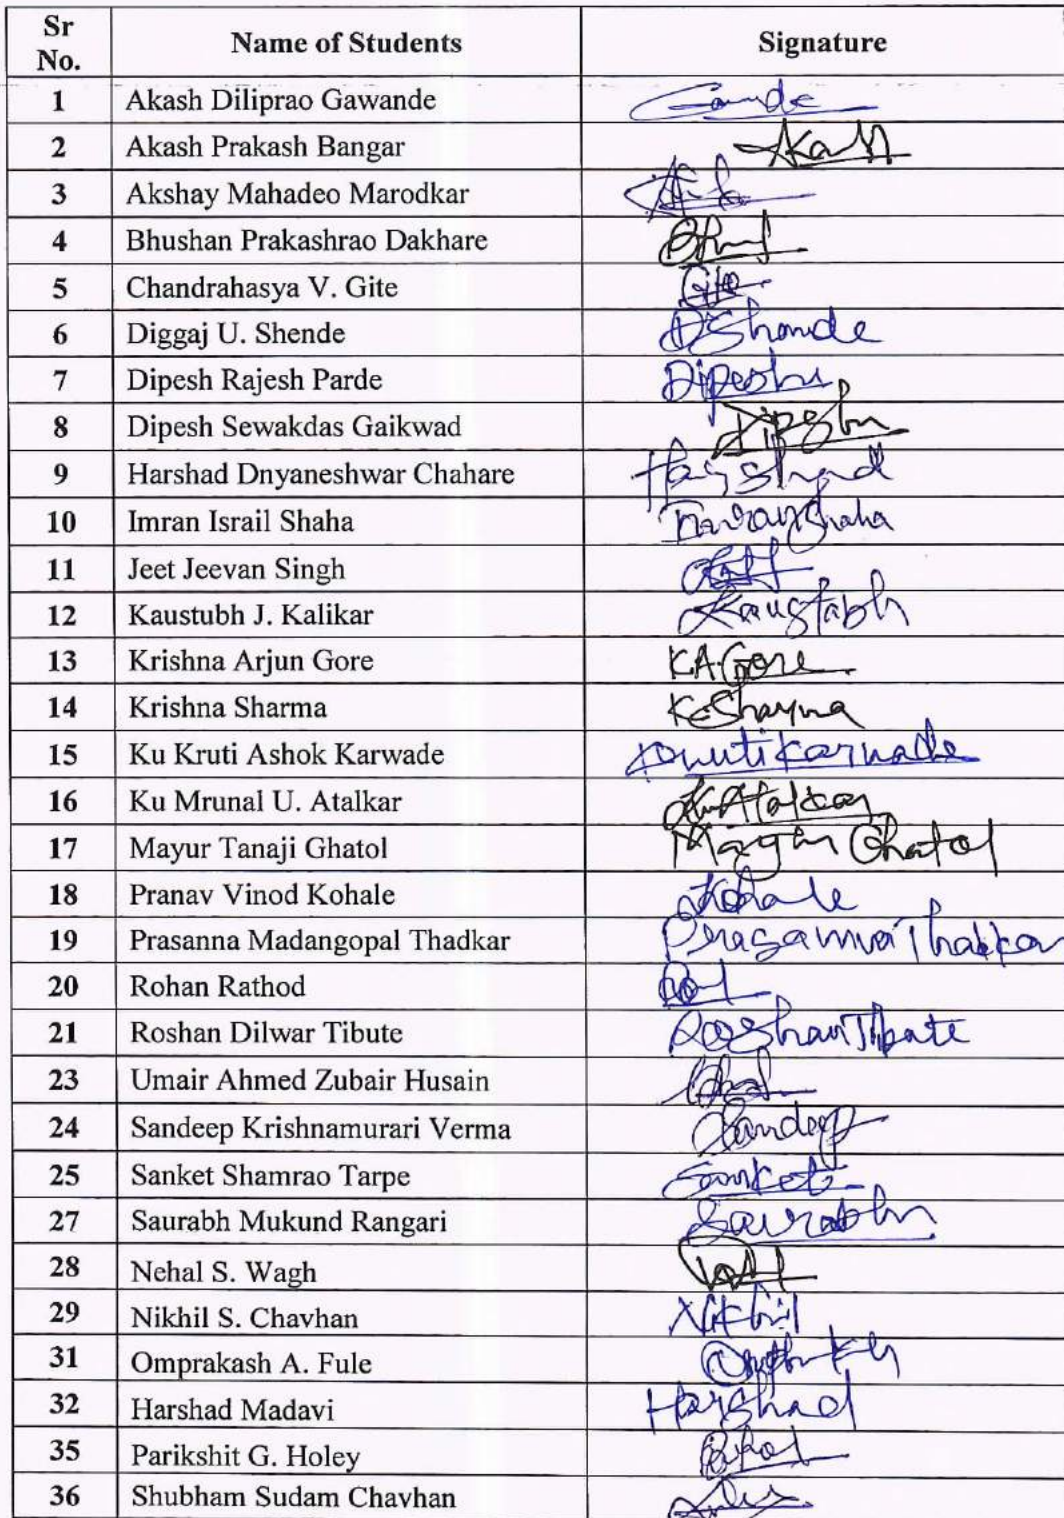 Sr No. Name of Students Signature
1 Akash Diliprao Gawande
2 Akash Prakash Bangar Akash
3 Akshay Mahadeo Marodkar
4 Bhushan Prakashrao Dakhare
5 Chandrahasya V. Gite Gite
6 Diggaj U. Shende DShende
7 Dipesh Rajesh Parde Dipesh
8 Dipesh Sewakdas Gaikwad Dipesh
9 Harshad Dnyaneshwar Chahare Harshad
10 Imran Israil Shaha Imran Shaha
11 Jeet Jeevan Singh
12 Kaustubh J. Kalikar Kaustabh
13 Krishna Arjun Gore K.A.Gore
14 Krishna Sharma K.Sharma
15 Ku Kruti Ashok Karwade Kruti Karwade
16 Ku Mrunal U. Atalkar Atalkar
17 Mayur Tanaji Ghatol Mayur Ghatol
18 Pranav Vinod Kohale Kohale
19 Prasanna Madangopal Thadkar Prasanna
20 Rohan Rathod
21 Roshan Dilwar Tibute Roshan
23 Umair Ahmed Zubair Husain
24 Sandeep Krishnamurari Verma Sandeep
25 Sanket Shamrao Tarpe Sanket
27 Saurabh Mukund Rangari Saurabh
28 Nehal S. Wagh
29 Nikhil S. Chavhan Nikhil
31 Omprakash A. Fule
32 Harshad Madavi Harshad
35 Parikshit G. Holey
36 Shubham Sudam Chavhan